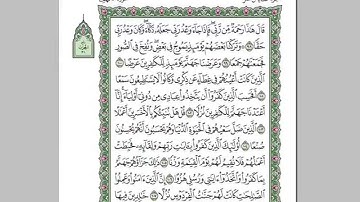 قَالَ هَٰذَا رَحْمَةٌ مِّن رَّبِّي فَإِذَا جَاءَ وَعْدُ رَبِّي جَعَلَهُ دَكَّاءَ وَكَانَ وَعْدُ رَبِّي
حَقًّا ۞ وَتَرَكْنَا بَعْضَهُمْ يَوْمَئِذٍ يَمُوجُ فِي بَعْضٍ وَنُفِخَ فِي الصُّورِ
فَجَمَعْنَاهُمْ جَمْعًا ۞ وَعَرَضْنَا جَهَنَّمَ يَوْمَئِذٍ لِّلْكَافِرِينَ عَرْضًا ۞
الَّذِينَ كَانَتْ أَعْيُنُهُمْ فِي غِطَاءٍ عَن ذِكْرِي وَكَانُوا لَا يَسْتَطِيعُونَ سَمْعًا
۞ أَفَحَسِبَ الَّذِينَ كَفَرُوا أَن يَتَّخِذُوا عِبَادِي مِن دُونِي أَوْلِيَاءَ إِنَّا
أَعْتَدْنَا جَهَنَّمَ لِلْكَافِرِينَ نُزُلًا ۞ قُلْ هَلْ نُنَبِّئُكُم بِالْأَخْسَرِينَ أَعْمَالًا
۞ الَّذِينَ ضَلَّ سَعْيُهُمْ فِي الْحَيَاةِ الدُّنْيَا وَهُمْ يَحْسَبُونَ أَنَّهُمْ يُحْسِنُونَ
صُنْعًا ۞ أُولَٰئِكَ الَّذِينَ كَفَرُوا بِآيَاتِ رَبِّهِمْ وَلِقَائِهِ فَحَبِطَتْ
أَعْمَالُهُمْ فَلَا نُقِيمُ لَهُمْ يَوْمَ الْقِيَامَةِ وَزْنًا ۞ ذَٰلِكَ جَزَاؤُهُمْ جَهَنَّمُ
بِمَا كَفَرُوا وَاتَّخَذُوا آيَاتِي وَرُسُلِي هُزُوًا ۞ إِنَّ الَّذِينَ آمَنُوا وَعَمِلُوا
الصَّالِحَاتِ كَانَتْ لَهُمْ جَنَّاتُ الْفِرْدَوْسِ نُزُلًا ۞ خَالِدِينَ فِيهَا